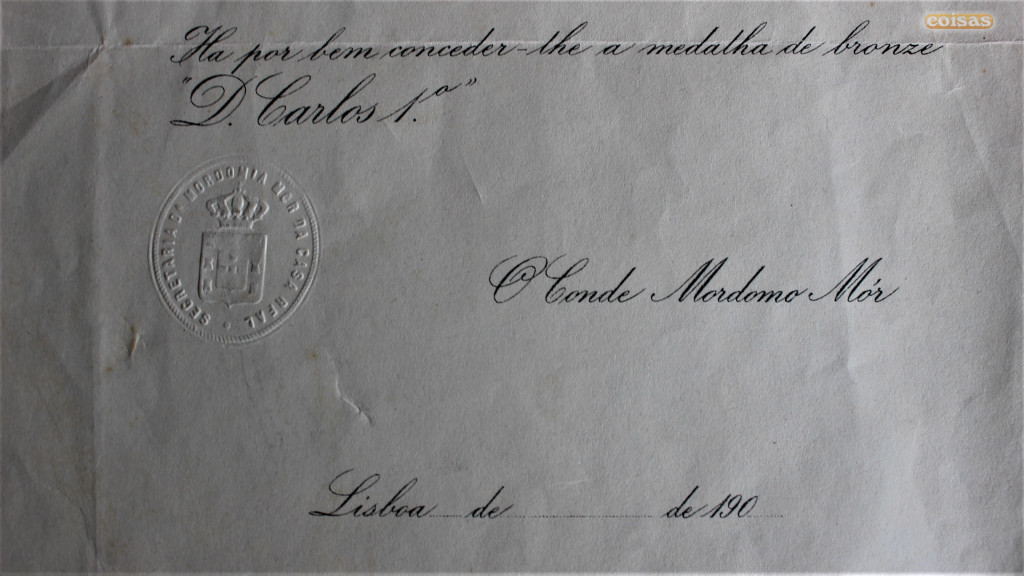 coisas
Ha por bem conceder-lhe a medalha de bronze
"D. Carlos 1.º"
SECRETARIA DA MORDOMIA MÓR DA CASA REAL
O Conde Mordomo Mór
Lisboa de de 190